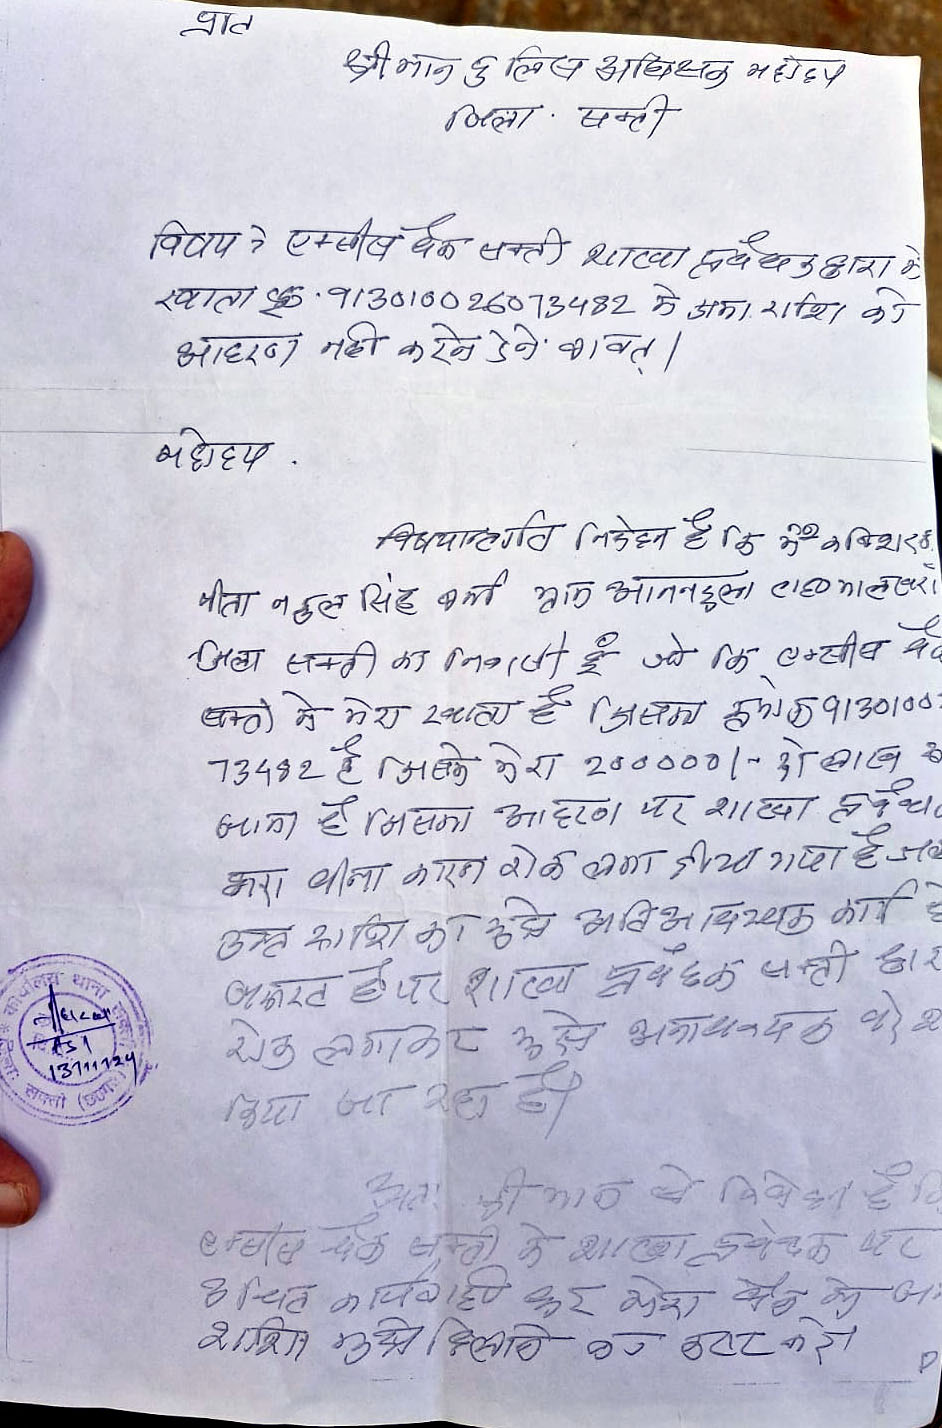 प्रति
श्रीमान पुलिस अधिक्षक महोदय
जिला . सक्ती
विषय :- एक्सीस बैंक सक्ती शाखा प्रबंधक द्वारा मेरे
खाता क्र. 913010026073482 मे जमा राशि को
आहरण नही करने देने बावत् ।
महोदय .
विषयान्तर्गत निवेदन है कि मैं
पीता नकुल सिंह वर्मा ग्राम
जिला सक्ती का निवासी हूँ जो कि एक्सीस बैंक
सक्ती मे मेरा खाता है जिसका क्रमांक 9130100
73482 है जिसमे मेरा 200000/- दो लाख
जमा है जिसका आहरण पर शाखा प्रबंधक
द्वारा बीना कारन रोक लगा दीया गया है
उक्त राशि का मुझे अतिआवश्यक कार्य
जरूरत है पर शाखा प्रबंधक सक्ती द्वारा
रोक लगाकर मुझे अनावश्यक परेशान
किया जा रहा है।
अतः श्रीमान से निवेदन है कि
एक्सीस बैंक सक्ती के शाखा प्रबंधक पर
उचित कार्यवाही कर मेरा बैंक मे जमा
राशि मुझे दिलाने का कष्ट करे।
थाना
ASI
13/11/24
सक्ती (छ0ग0)